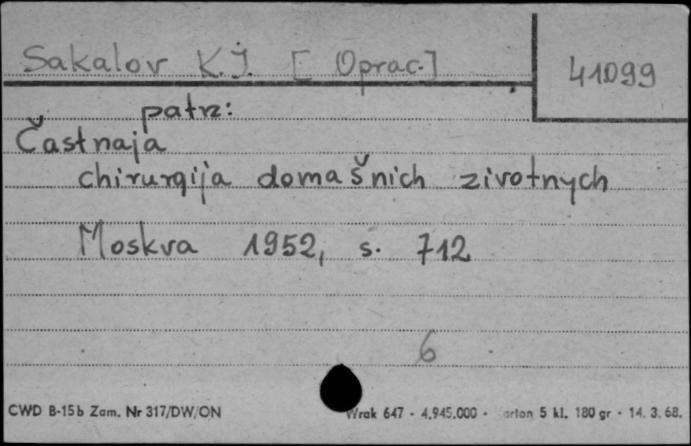 Sakalov K.J. [Oprac.]
41099
patrz:
Častnaja
chirurgija domašnich zivotnych
Moskva 1952, s. 712
6
CWD B-15b Zam. Nr 317/DW/ON
Wrak 647 - 4.945.000 - arton 5 kl. 180 gr - 14. 3. 68.